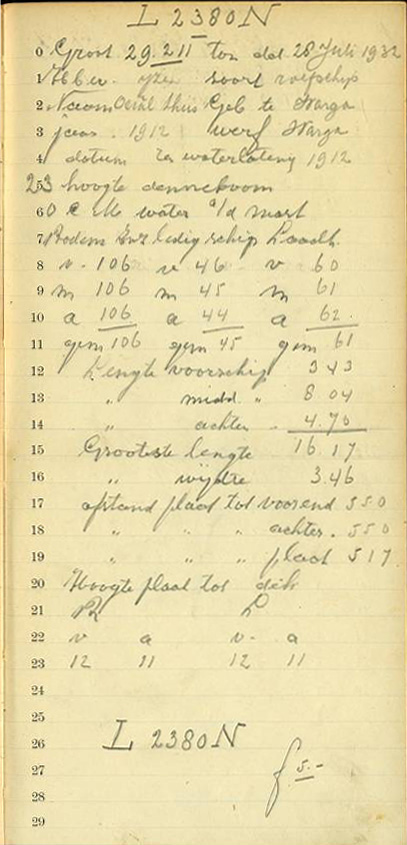 L 2380N
0 Groot 29.211 ton dat 28 Juli 1932
1 yzer soort roefschip
2 Naam Geb te Warga
3 jaar. 1912 werf Warga
4 datum te waterlating 1912
253 hoogte denneboom
6 0 c M water a/d mast
7 Bodem ledig schip
8 v - 106 v 46 v 60
9 m 106 m 45 m 61
10 a 106 a 44 a 62.
11 gem 106 gem 45 gem 61
12 Lengte voorschip 343
13 " midd. " 8 04
14 " achter " 4.70
15 Grootste lengte 16 17
16 " wijdte 3.46
17 afstand plaat tot voorend 550
18 " " " achter. 550
19 " " " plaat 517
20 Hoogte plaat tot dek
21 R L
22 v a v - a
23 12 11 12 11
24
25
26 L 2380N
27 f 5.-
28
29